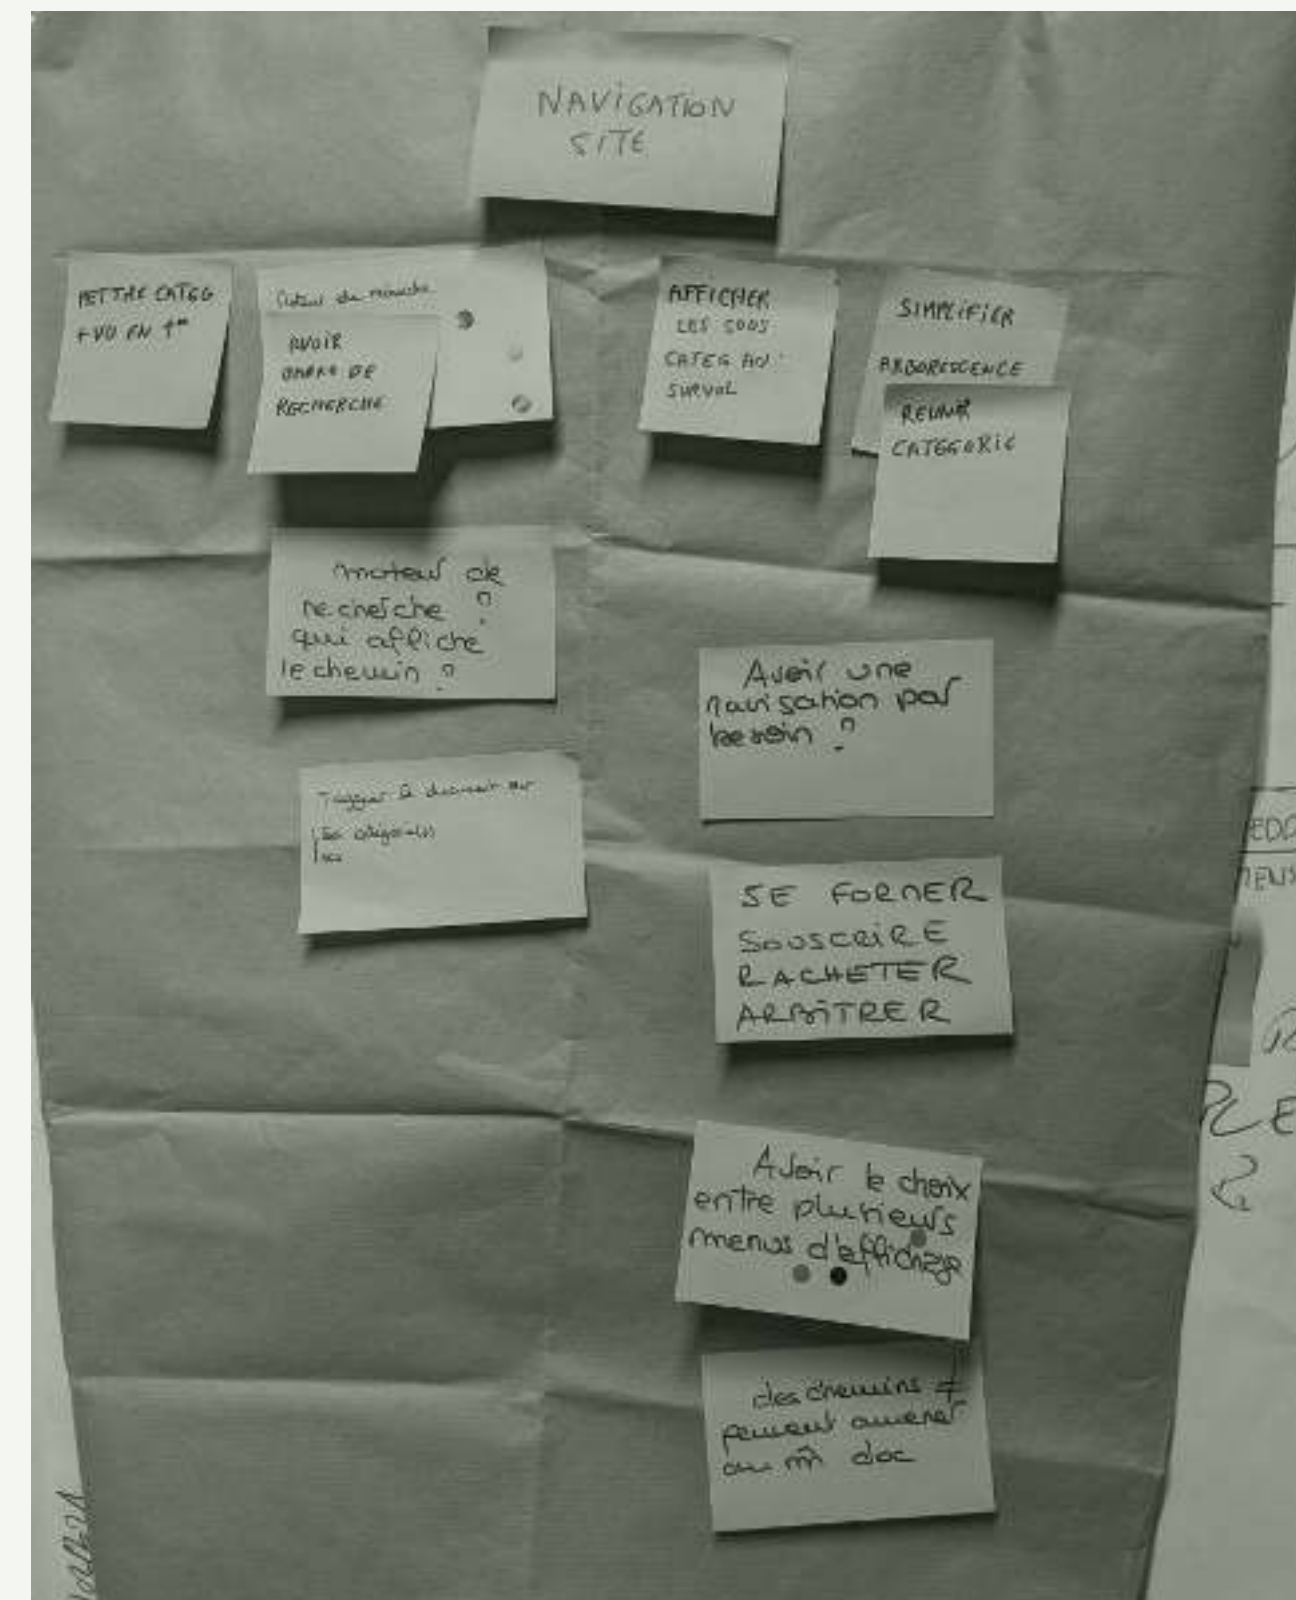 NAVIGATION
SITE
METTRE CATEG
+ VU EN 1er
de recherche
AVOIR
BARRE DE
RECHERCHE
AFFICHER
LES SOUS
CATEG AU
SURVOL
SIMPLIFIER
ARBORESCENCE
REUNIR
CATEGORIE
moteur de
recherche ?
qui affiche
le chemin ?
Avoir une
navigation par
besoin ?
Tagguer le document sur
catégorie(s)
SE FORMER
SOUSCRIRE
RACHETER
ARBITRER
Avoir le choix
entre plusieurs
menus d'affichage
des chemins ≠
peuvent amener
au m̂ doc